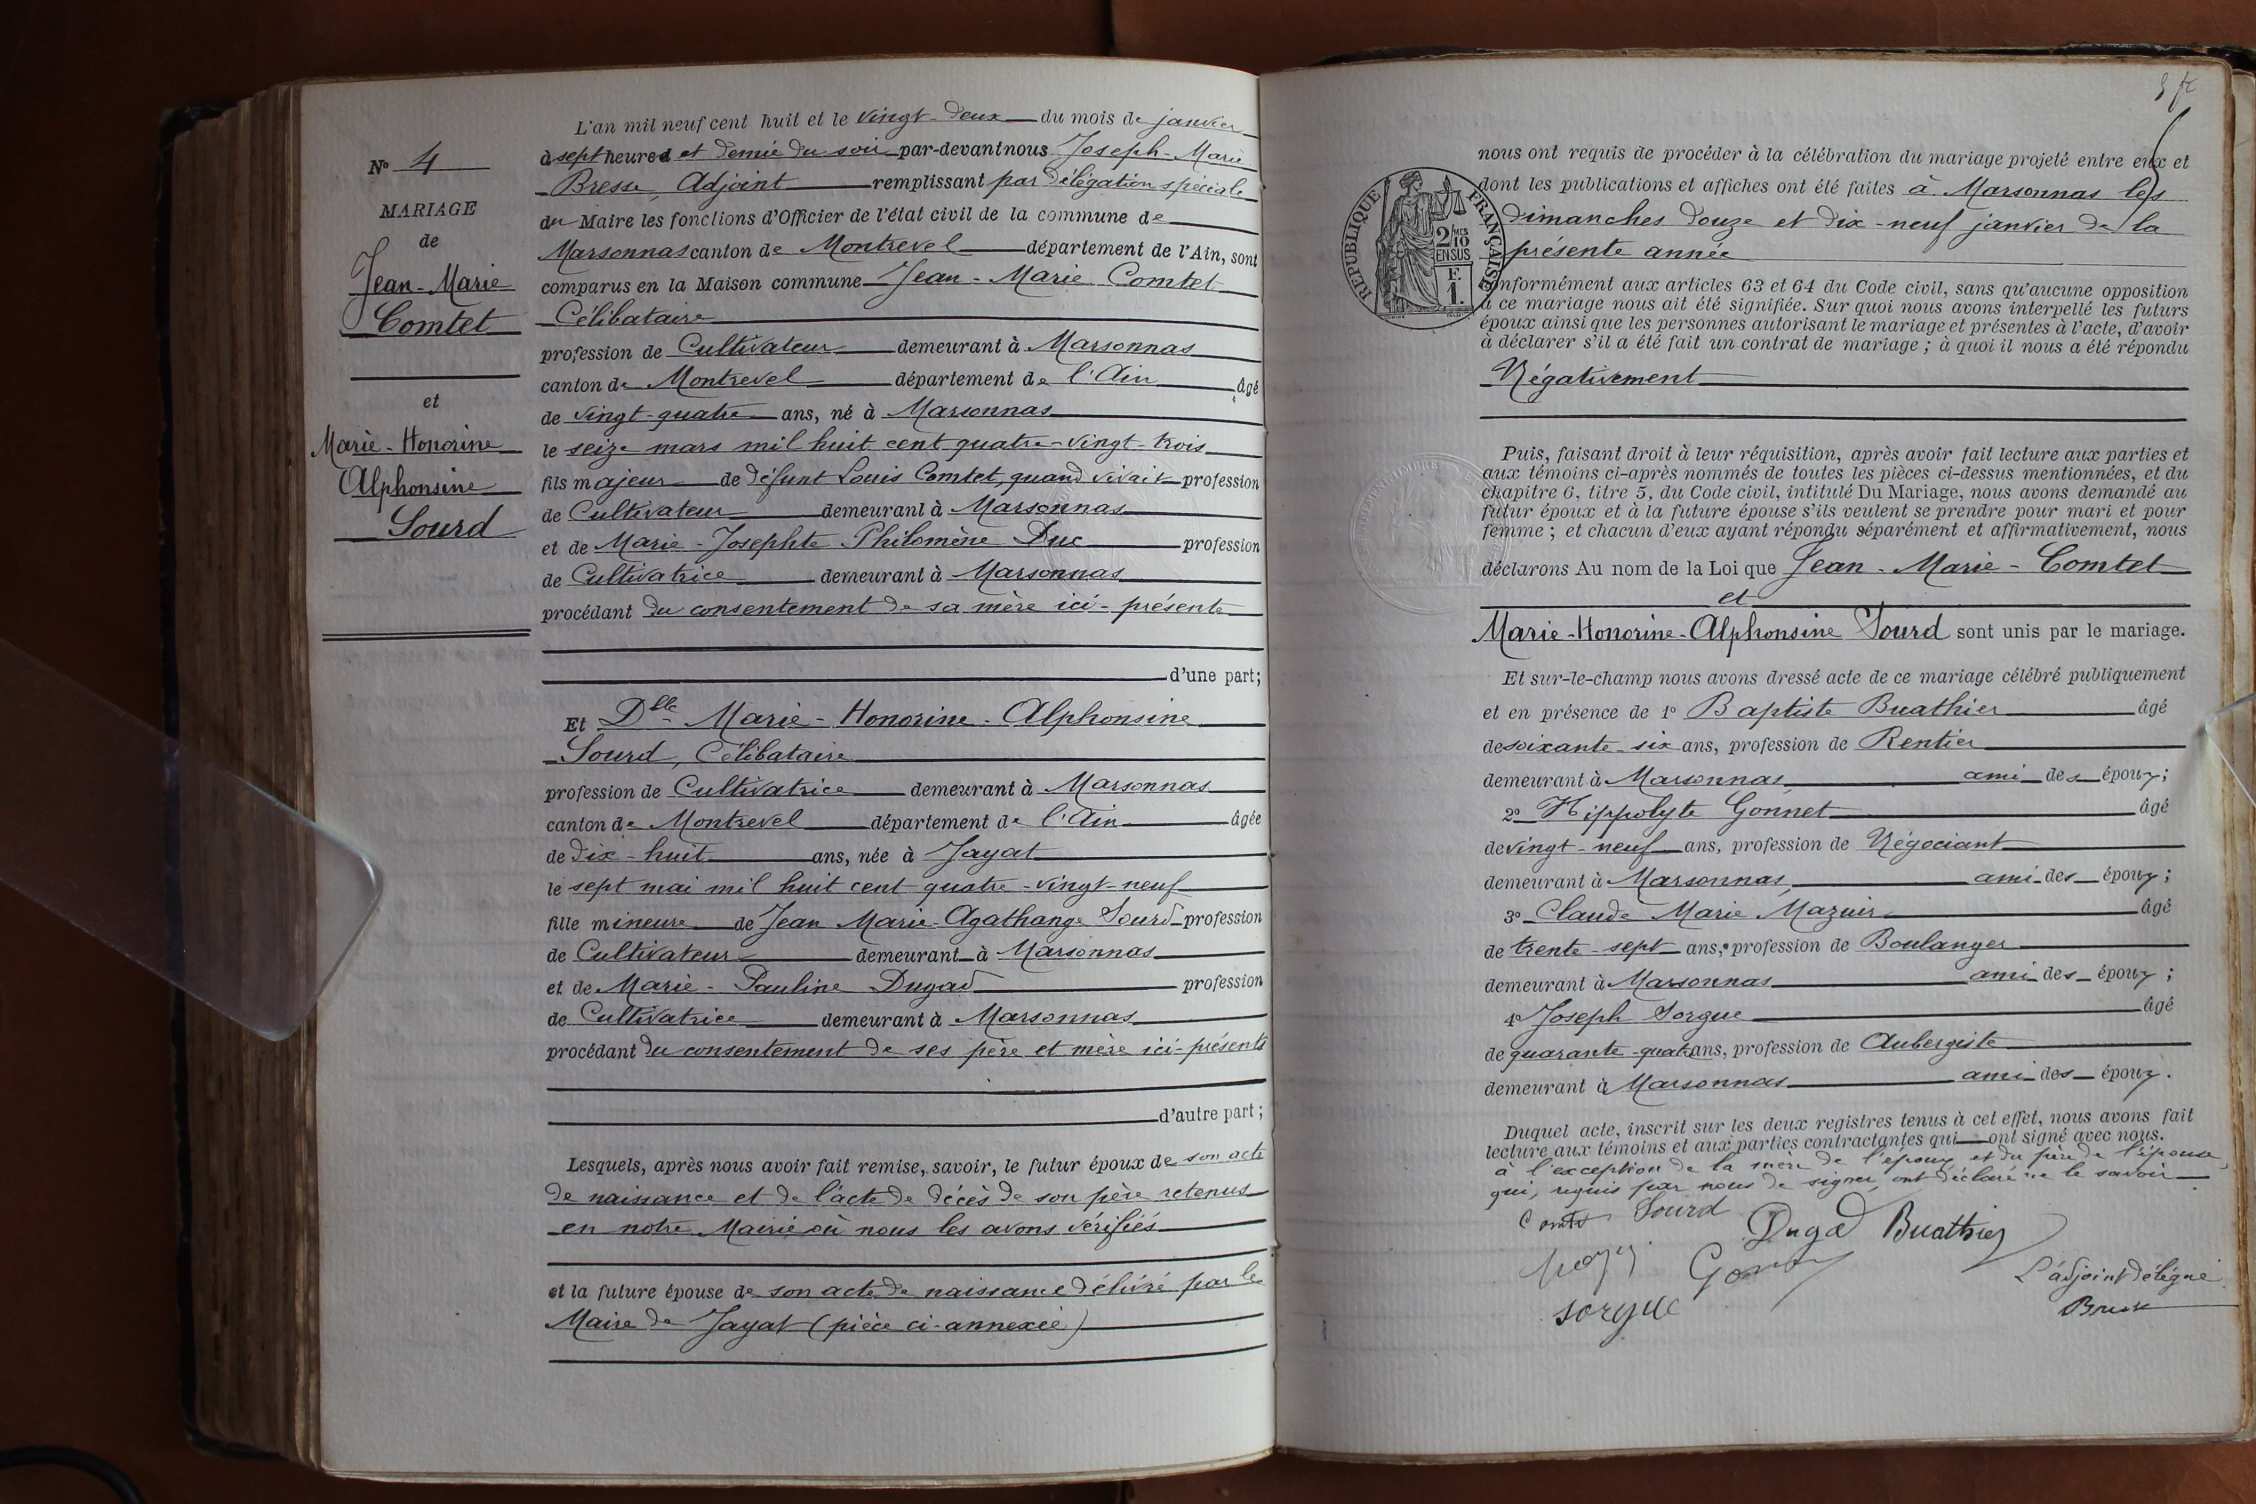 N° 4
MARIAGE
de
Jean-Marie
Comtet
et
Marie-Honorine
Alphonsine
Sourd
L'an mil neuf cent huit et le vingt-deux du mois de janvier
à sept heures et demie du soir par-devant nous Joseph-Marie
Bresse, Adjoint remplissant par délégation spéciale
du Maire les fonctions d'Officier de l'état civil de la commune de
Marsonnas canton de Montrevel département de l'Ain, sont
comparus en la Maison commune Jean-Marie Comtet
Célibataire
profession de Cultivateur demeurant à Marsonnas
canton de Montrevel département de l'Ain âgé
de vingt-quatre ans, né à Marsonnas
le seize mars mil huit cent quatre-vingt-trois
fils majeur de défunt Louis Comtet, quand vivait profession
de Cultivateur demeurant à Marsonnas
et de Marie-Josephte Philomène Duc profession
de Cultivatrice demeurant à Marsonnas
procédant du consentement de sa mère ici-présente
d'une part;
Et Dlle Marie-Honorine-Alphonsine
Sourd, Célibataire
profession de Cultivatrice demeurant à Marsonnas
canton de Montrevel département de l'Ain âgée
de dix-huit ans, née à Jayat
le sept mai mil huit cent quatre-vingt-neuf
fille mineure de Jean Marie-Agathange Sourd profession
de Cultivateur demeurant à Marsonnas
et de Marie-Pauline Dugad profession
de Cultivatrice demeurant à Marsonnas
procédant du consentement de ses père et mère ici-présents
d'autre part;
Lesquels, après nous avoir fait remise, savoir, le futur époux de son acte
de naissance et de l'acte de décès de son père retenus
en notre Mairie où nous les avons vérifiés
et la future épouse de son acte de naissance délivré par le
Maire de Jayat (pièce ci-annexée)
RÉPUBLIQUE FRANÇAISE
2 MES
10
EN SUS
F.
1.
nous ont requis de procéder à la célébration du mariage projeté entre eux et
dont les publications et affiches ont été faites à Marsonnas les
dimanches douze et dix-neuf janvier de la
présente année
conformément aux articles 63 et 64 du Code civil, sans qu'aucune opposition
à ce mariage nous ait été signifiée. Sur quoi nous avons interpellé les futurs
époux ainsi que les personnes autorisant le mariage et présentes à l'acte, d'avoir
à déclarer s'il a été fait un contrat de mariage; à quoi il nous a été répondu
Négativement
Puis, faisant droit à leur réquisition, après avoir fait lecture aux parties et
aux témoins ci-après nommés de toutes les pièces ci-dessus mentionnées, et du
chapitre 6, titre 5, du Code civil, intitulé Du Mariage, nous avons demandé au
futur époux et à la future épouse s'ils veulent se prendre pour mari et pour
femme; et chacun d'eux ayant répondu séparément et affirmativement, nous
déclarons Au nom de la Loi que Jean-Marie-Comtet
et
Marie-Honorine-Alphonsine Sourd sont unis par le mariage.
Et sur-le-champ nous avons dressé acte de ce mariage célébré publiquement
et en présence de 1° Baptiste Buathier âgé
de soixante-six ans, profession de Rentier
demeurant à Marsonnas, ami des époux;
2° Hippolyte Gonnet âgé
de vingt-neuf ans, profession de Négociant
demeurant à Marsonnas, ami des époux;
3° Claude Marie Mazuir âgé
de trente-sept ans, profession de Boulanger
demeurant à Marsonnas ami des époux;
4° Joseph Sorgue âgé
de quarante-quatre ans, profession de Aubergiste
demeurant à Marsonnas ami des époux.
Duquel acte, inscrit sur les deux registres tenus à cet effet, nous avons fait
lecture aux témoins et aux parties contractantes qui ont signé avec nous.
à l'exception de la mère de l'époux et du père de l'épouse,
qui, requis par nous de signer, ont déclaré ne le savoir
Sourd
Dugad Buathier
sorgue
L'adjoint délégué
Bresse